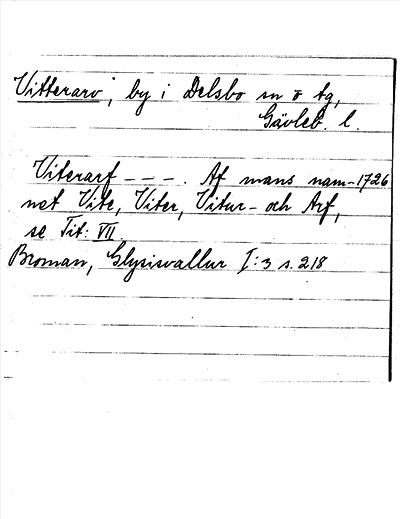 Vitterarv, by i Delsbo sn o tg,
Gävleb. l.
Viterarf - - - . Af mans nam- 1726
net Vite, Viter, Vitur- och Arf,
se Tit: VII
Broman, Glysisvallur I:3 s. 218